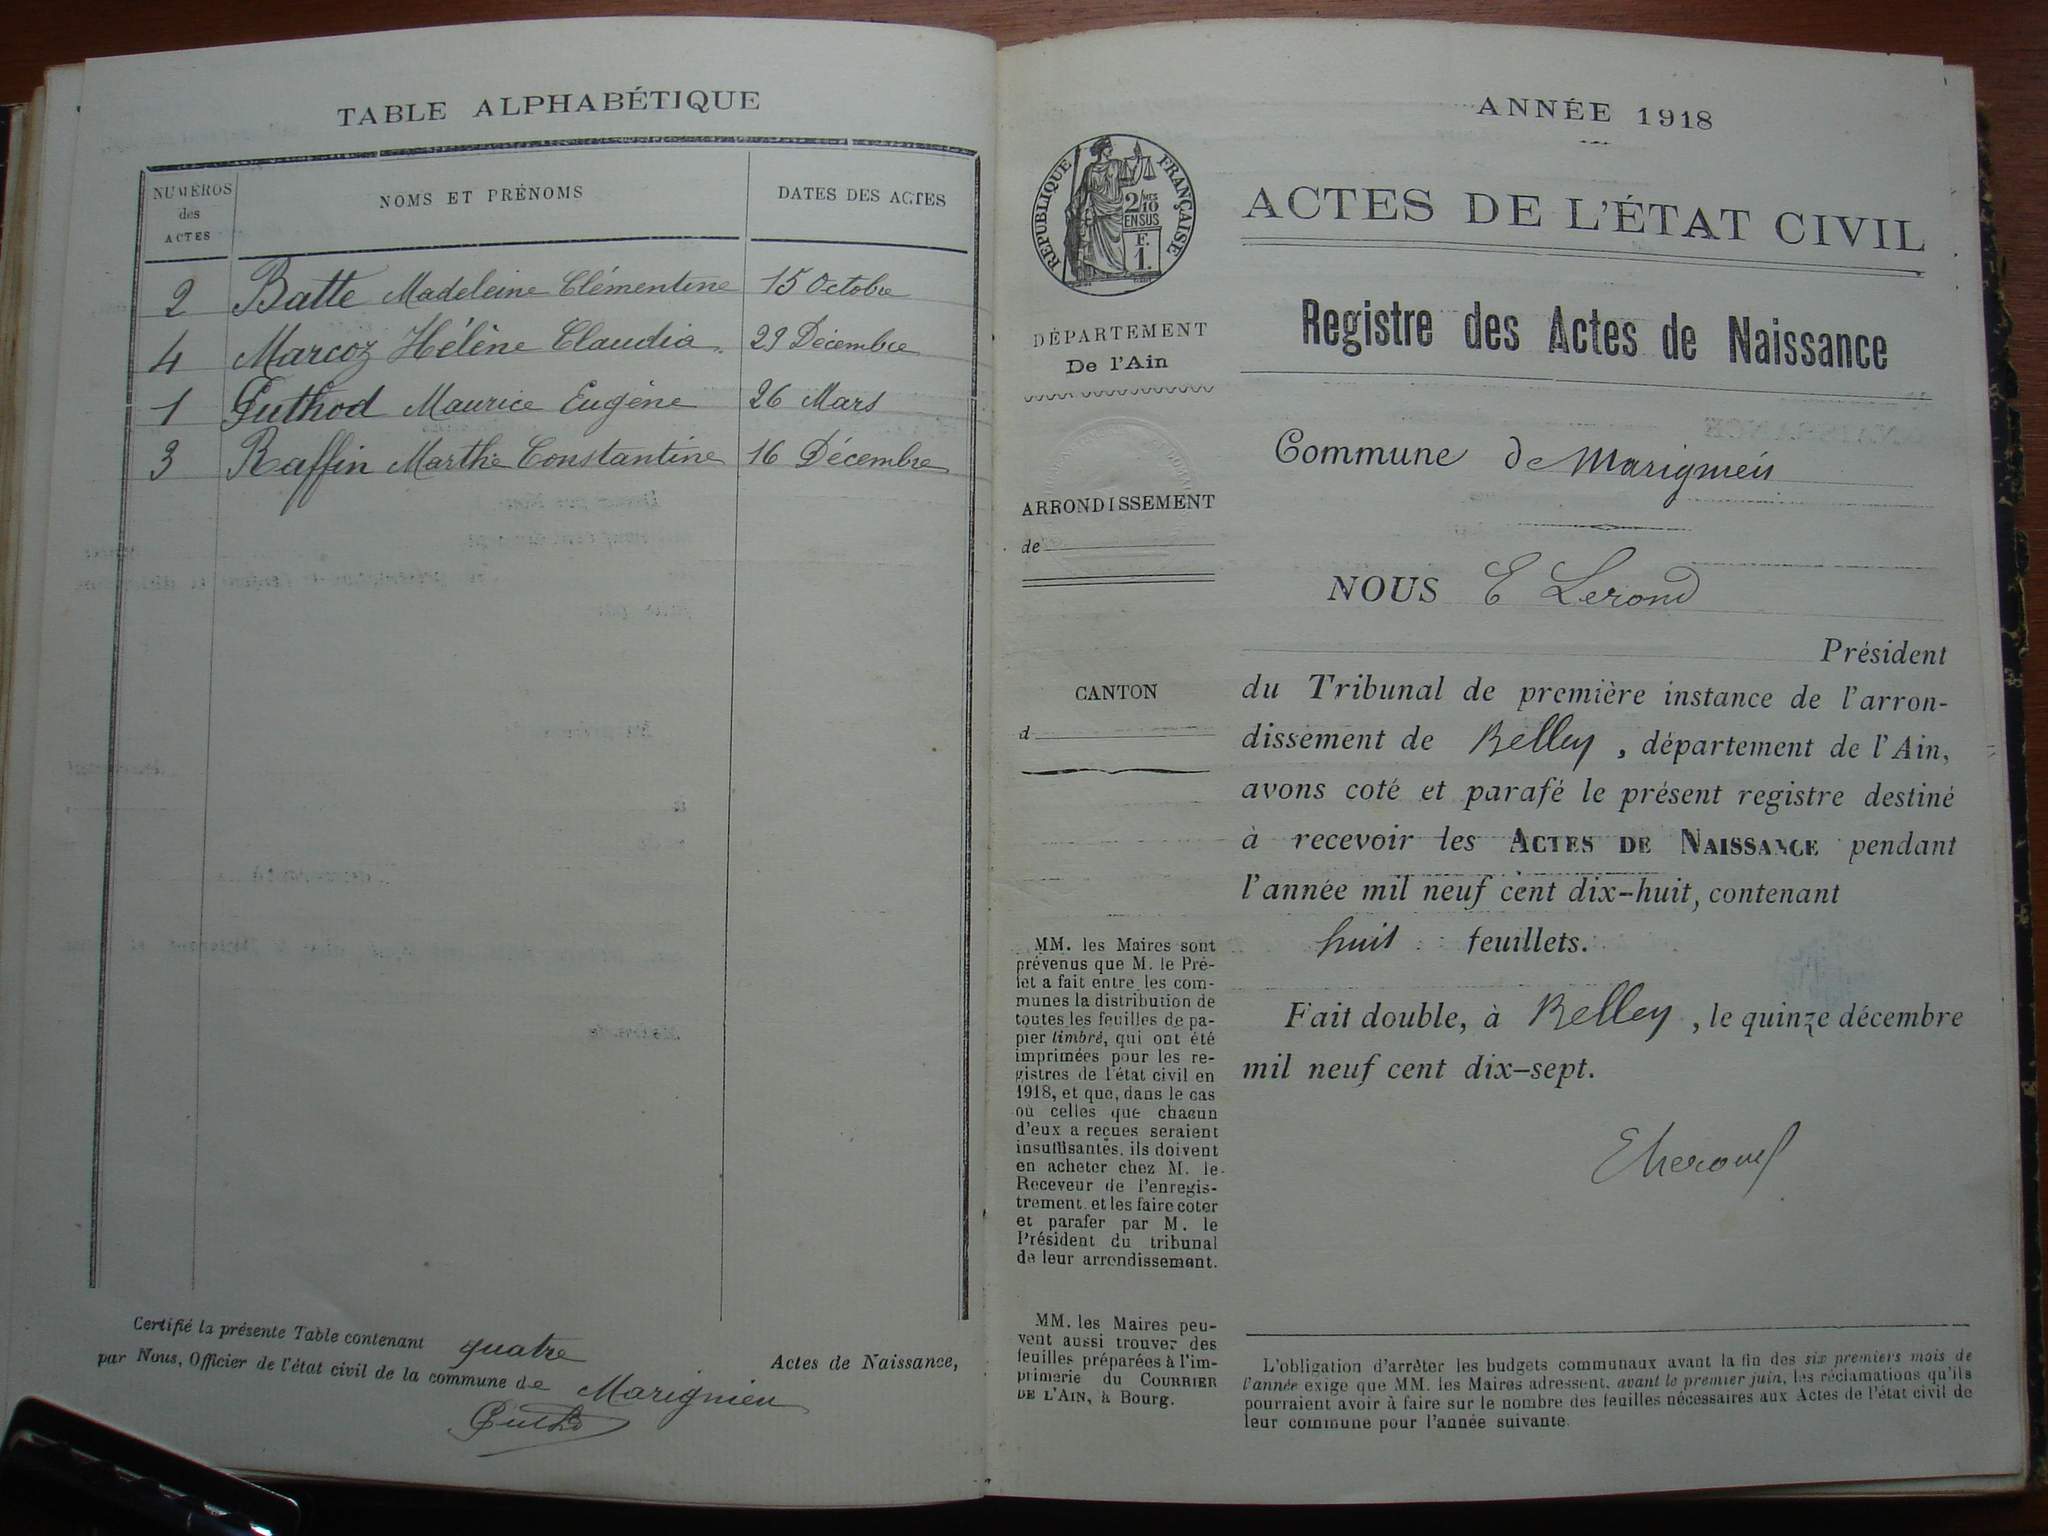 TABLE ALPHABÉTIQUE
NUMÉROS des ACTES
NOMS ET PRÉNOMS
DATES DES ACTES
2 Batte Madeleine Clémentine 15 Octobre
4 Marcoz Hélène Claudia 29 Décembre
1 Guthod Maurice Eugène 26 Mars
3 Raffin Marthe Constantine 16 Décembre
Certifié la présente Table contenant quatre Actes de Naissance,
par Nous, Officier de l'état civil de la commune de Marignieu
ANNÉE 1918
RÉPUBLIQUE FRANÇAISE
2/10 MES
EN SUS
F.
1.
ACTES DE L'ÉTAT CIVIL
DÉPARTEMENT
De l'Ain
Registre des Actes de Naissance
Commune de Marignieu
ARRONDISSEMENT
de
NOUS E Lerond
Président
CANTON
d
du Tribunal de première instance de l'arron-
dissement de Belley, département de l'Ain,
avons coté et parafé le présent registre destiné
à recevoir les ACTES DE NAISSANCE pendant
l'année mil neuf cent dix-huit, contenant
huit feuillets.
Fait double, à Belley, le quinze décembre
mil neuf cent dix-sept.
ELerond
MM. les Maires sont
prévenus que M. le Pré-
fet a fait entre les com-
munes la distribution de
toutes les feuilles de pa-
pier timbré, qui ont été
imprimées pour les re-
gistres de l'état civil en
1918, et que, dans le cas
où celles que chacun
d'eux a reçues seraient
insuffisantes, ils doivent
en acheter chez M. le
Receveur de l'enregis-
trement, et les faire coter
et parafer par M. le
Président du tribunal
de leur arrondissement.
MM. les Maires peu-
vent aussi trouver des
feuilles préparées à l'im-
primerie du COURRIER
DE L'AIN, à Bourg.
L'obligation d'arrêter les budgets communaux avant la fin des six premiers mois de
l'année exige que MM. les Maires adressent, avant le premier juin, les réclamations qu'ils
pourraient avoir à faire sur le nombre des feuilles nécessaires aux Actes de l'état civil de
leur commune pour l'année suivante.